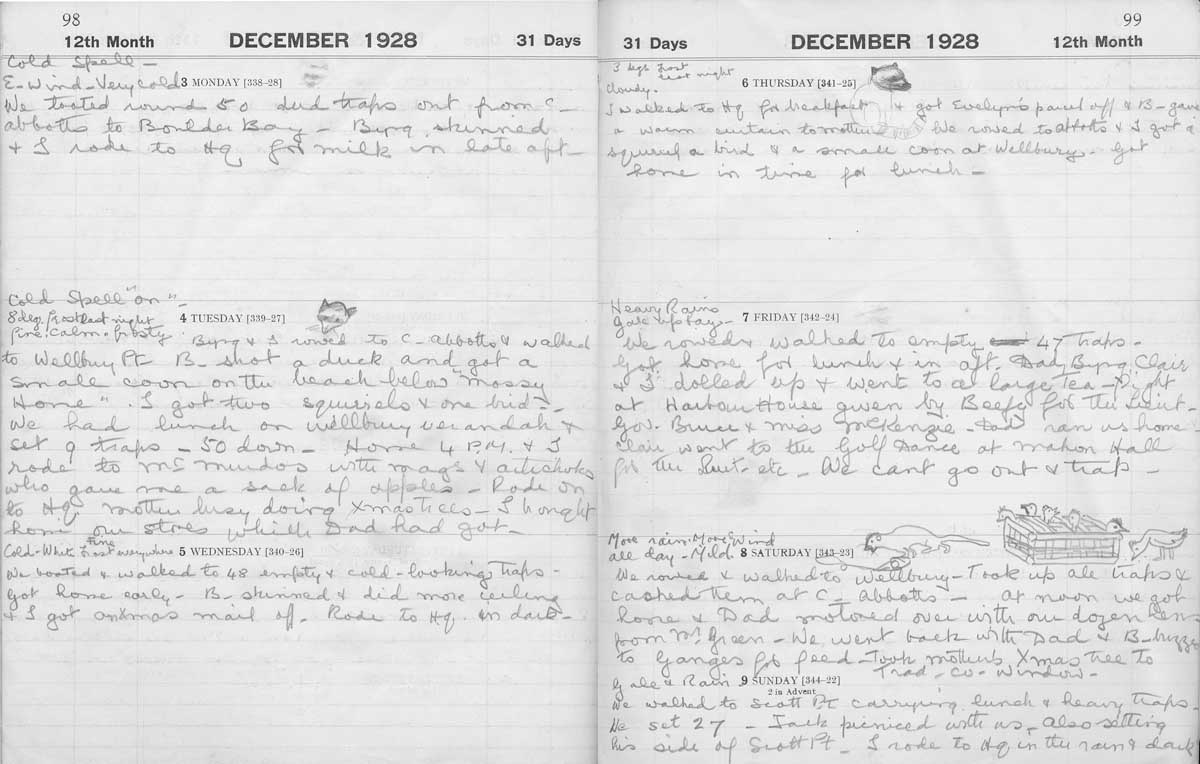 98
12th Month DECEMBER 1928 31 Days
Cold Spell -
E-Wind - Very cold 3 MONDAY [338-28]
We tooted round 50 dud traps out from C-
abbotts to Boulder Bay - Byrg skinned
& I rode to Hq for milk in late aft-
Cold Spell "on" -
8 deg. Frost last night
Fine, calm & frosty 4 TUESDAY [339-27]
Byrg & I rowed to C- abbotts & walked
to Wellbury Pt B- shot a duck and got a
small coon on the beach below "mossy
Home". I got two squirrels & one bird -
We had lunch on Wellbury verandah &
set 9 traps - 50 down - Home 4 P.M. & I
rode to McMurdos with mags & artichoks
who gave me a sack of apples - Rode on
to Hq. mother busy doing Xmas trees - I brought
home our stores which Dad had got -
Cold - White Frost everywhere Fine 5 WEDNESDAY [340-26]
We boated & walked to 48 empty & cold-looking traps -
Got home early - B- skinned & did more ceiling
& I got an xmas mail off. Rode to Hq. in dark -
99
31 Days DECEMBER 1928 12th Month
3 degs Frost
last night
Cloudy. 6 THURSDAY [341-25]
I walked to Hq for breakfast & got Evelyn's parcel off & B- gave
a warm curtain to mother We rowed to abbotts & I got a
squirrel a bird & a small coon at Wellbury. Got
home in time for lunch -
Heavy Rains
7 FRIDAY [342-24]
We rowed & walked to empty 47 traps -
Got home for lunch & in aft. Dad, Byrg, Clair
& I dolled up & went to a large tea-fight
at Harbour House given by Beefy for the Lieut-
Gov. Bruce & Miss McKenzie - Dad ran us home
Clair went to the Golf Dance at Mahon Hall
for the Lieut- etc - We cant go out & trap -
More rain. More Wind
all day - Mild. 8 SATURDAY [343-23]
We rowed & walked to Wellbury - Took up all traps &
cached them at C- Abbotts - at noon we got
home & Dad motored over with our dozen hens
from Mr Green - We went back with Dad & B- buzzed
to Ganges for feed - Took mother's Xmas tree to
Trad-co-window -
Gale & Rain 9 SUNDAY [344-22]
2 in Advent
We walked to Scott Pt carrying lunch & heavy traps
We set 27 - Jack picniced with us, also setting
his side of Scott Pt - I rode to Hq in the rain & dark